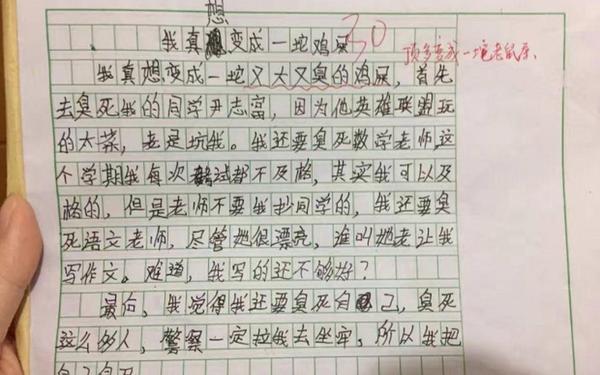 想
我真变成一坨鸡屎
30
顶多变成一坨老鼠屎.
我真想变成一坨又大又臭的鸡屎,首先
去臭死我的同学尹志富,因为他英雄联盟玩
的太菜,老是坑我。我还要臭死数学老师这
个学期我每次考试都不及格,其实我可以及
格的,但是老师不要我抄同学的,我还要臭
死语文老师,尽管她很漂亮,谁叫她老让我
写作文。难道,我写的还不够好?
最后,我觉得我还要臭死自己,臭死
这么多人,警察一定拉我去坐牢。所以我把
自己臭死